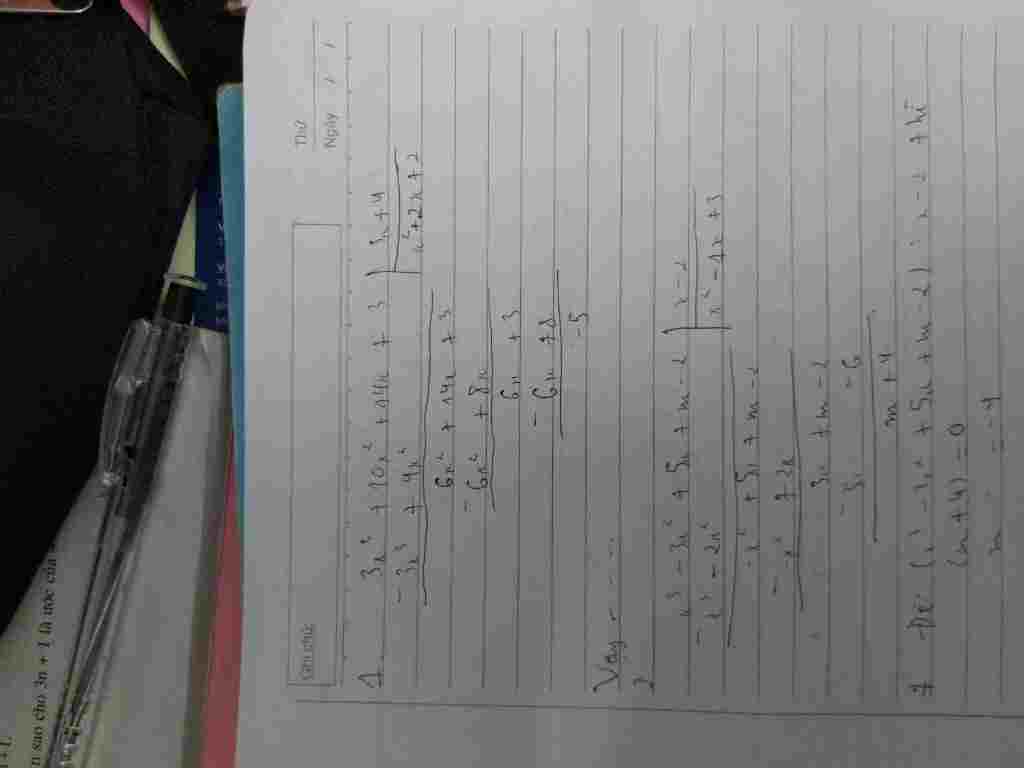 Thứ
Ngày / /
Ghi chú
1. 3x³ + 10x² + 14x + 3 | 3x + 4
- 3x³ + 4x² | x² + 2x + 2
6x² + 14x + 3
- 6x² + 8x
6x + 3
- 6x + 8
-5
Vậy - - - -
2
x³ - 3x² + 5x + m - 2 | x - 2
- x³ - 2x² | x² - 1x + 3
- x² + 5x + m - 2
- - x² + 2x
3x + m - 2
- 3x - 6
m + 4
Để (x³ - 3x² + 5x + m - 2) : x - 2 thì
(m + 4) = 0
m = -4
n sao cho 3n + 1 là ước của